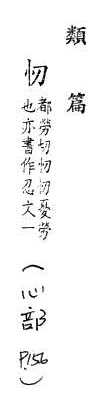 類篇
忉
都勞切忉忉憂勞
也亦書作忍文一
(心部 P.156)